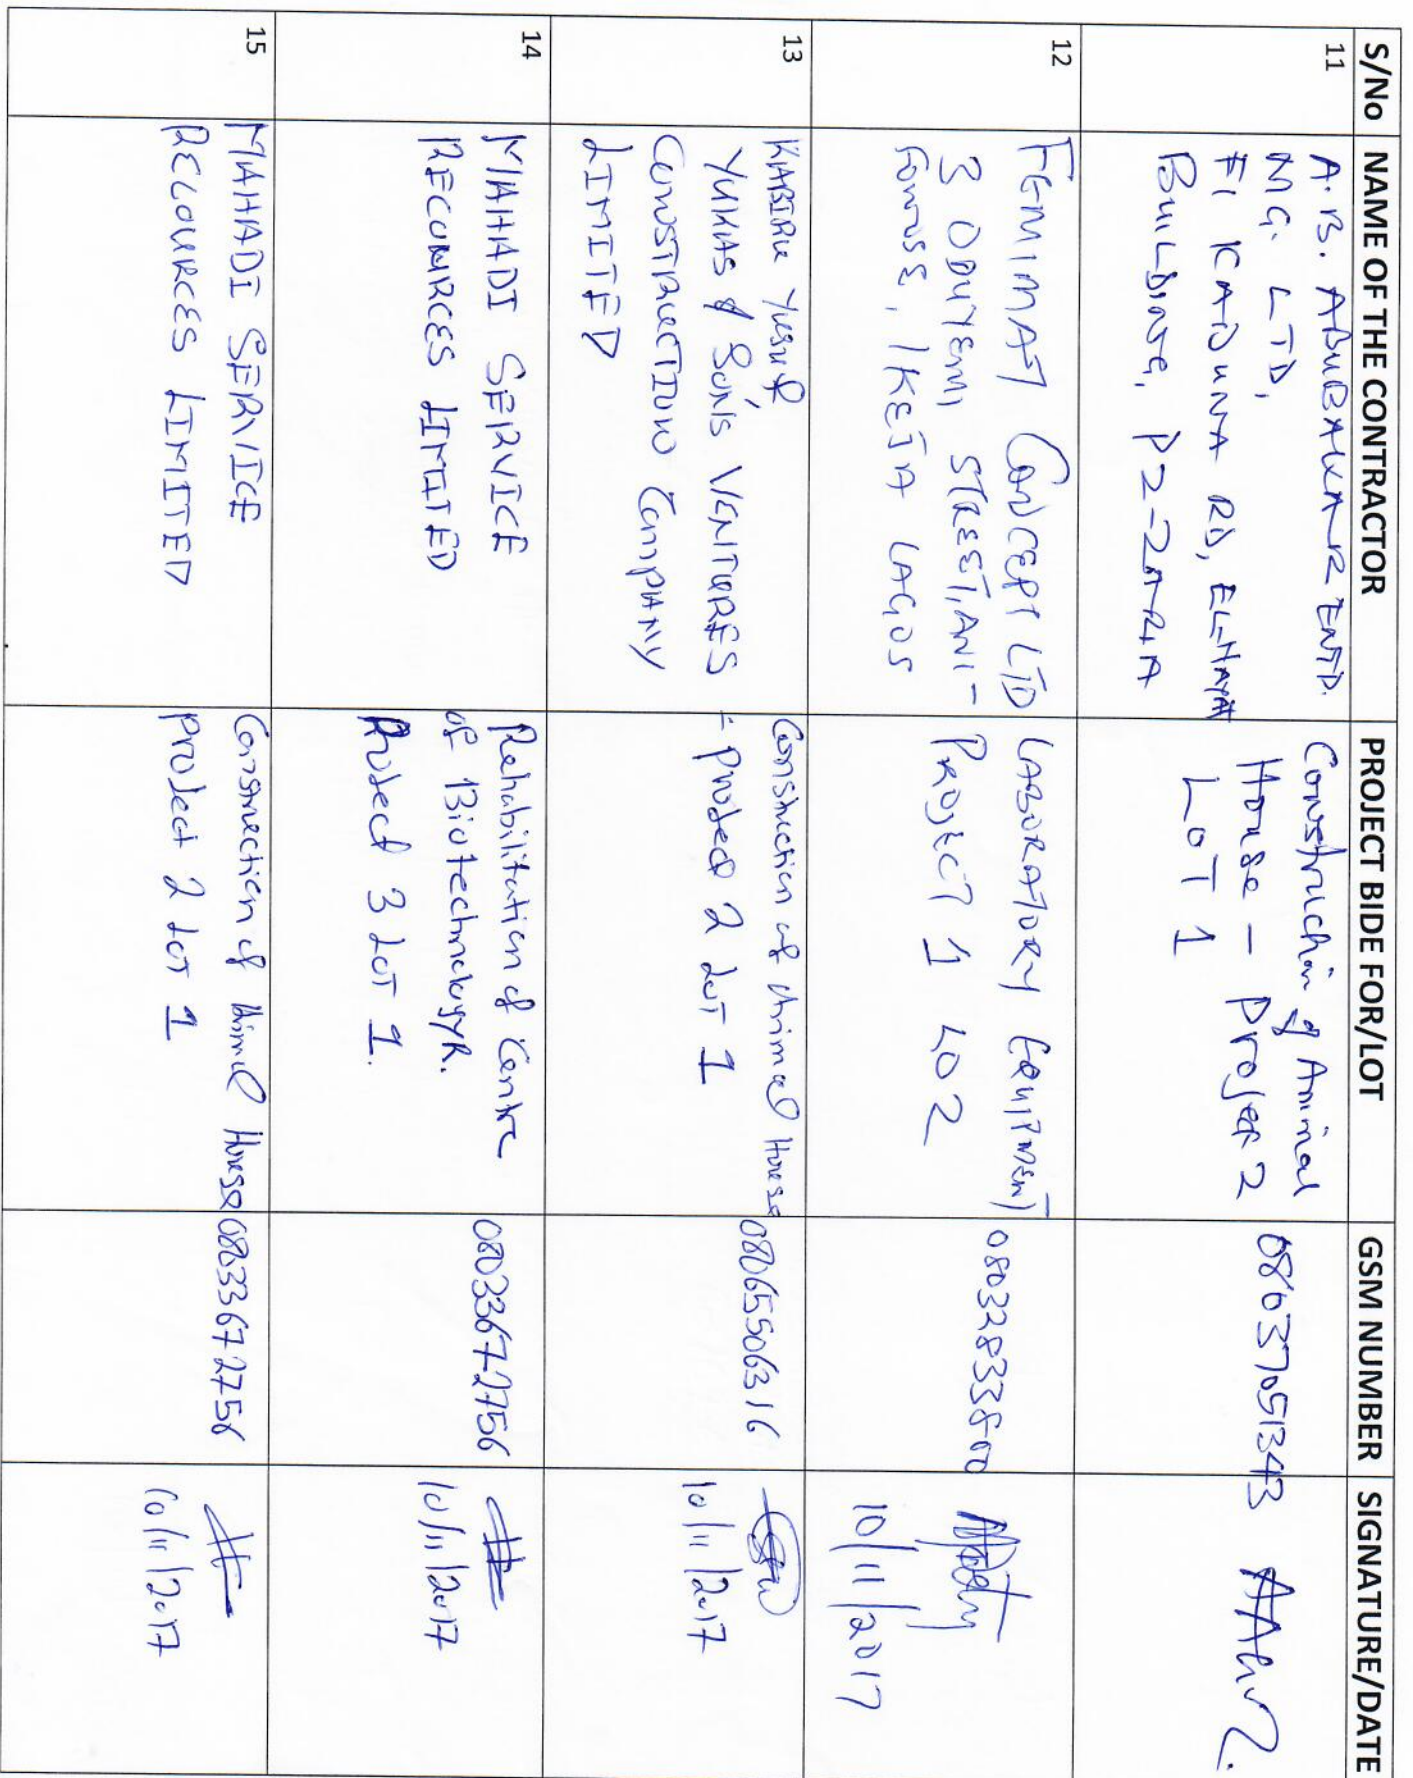 S/No NAME OF THE CONTRACTOR PROJECT BIDE FOR/LOT GSM NUMBER SIGNATURE/DATE
11
A. B. ABUBAKAR ENTP.
NIG. LTD,
F1 KADUNA RD, EL-HAYAT
BUILDING, PZ-ZARIA
Construction of Animal
House - Project 2
LOT 1
08037051343
12
FEMIMAT CONCEPT LTD
3 ODUYEMI STREET, ANI-
FOWOSE, IKEJA LAGOS
LABORATORY EQUIPMENT
PROJECT 1 LO2
08032833800
10/11/2017
13
KABIRU YUSUF
YUKAS & SON'S VENTURES
CONSTRUCTION COMPANY
LIMITED
Construction of Animal House
- Project 2 LOT 1
08065506316
10/11/2017
14
MAHADI SERVICE
RECOURCES LIMITED
Rehabilitation of Centre
of Biotechnology R.
Project 3 LOT 1.
08033672756
10/11/2017
15
MAHADI SERVICE
RECOURCES LIMITED
Construction of Animal House
Project 2 LOT 1
08033672756
10/11/2017